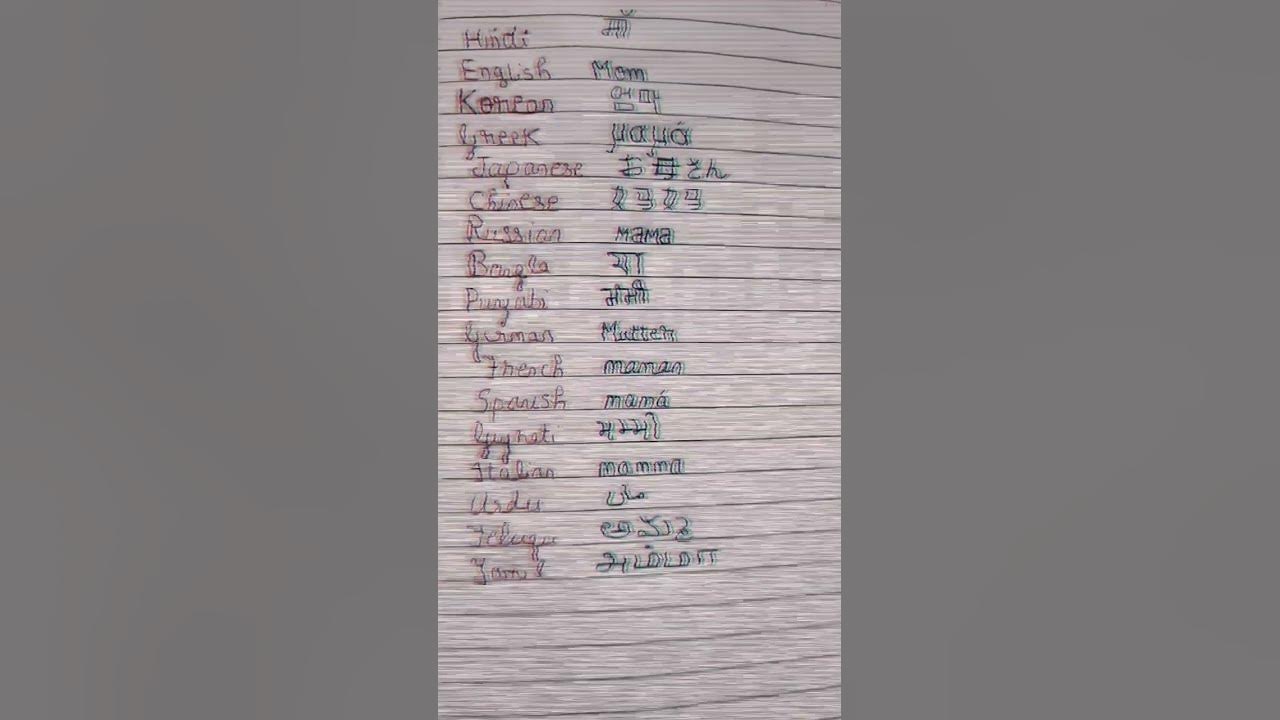 Hindi माँ
English Mom
Korean 엄마
Greek μαμά
Japanese お母さん
Chinese 妈妈
Russian мама
Bangla
Punjabi मंमी
German Mutter
French maman
Spanish mamá
Gujrati મમ્મી
Italian mamma
Urdu ماں
Telugu అమ్మ
Tamil அம்மா